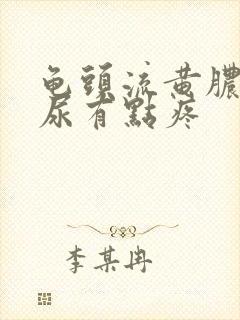 龟頭流黄膿
尿有點疼
李某冉